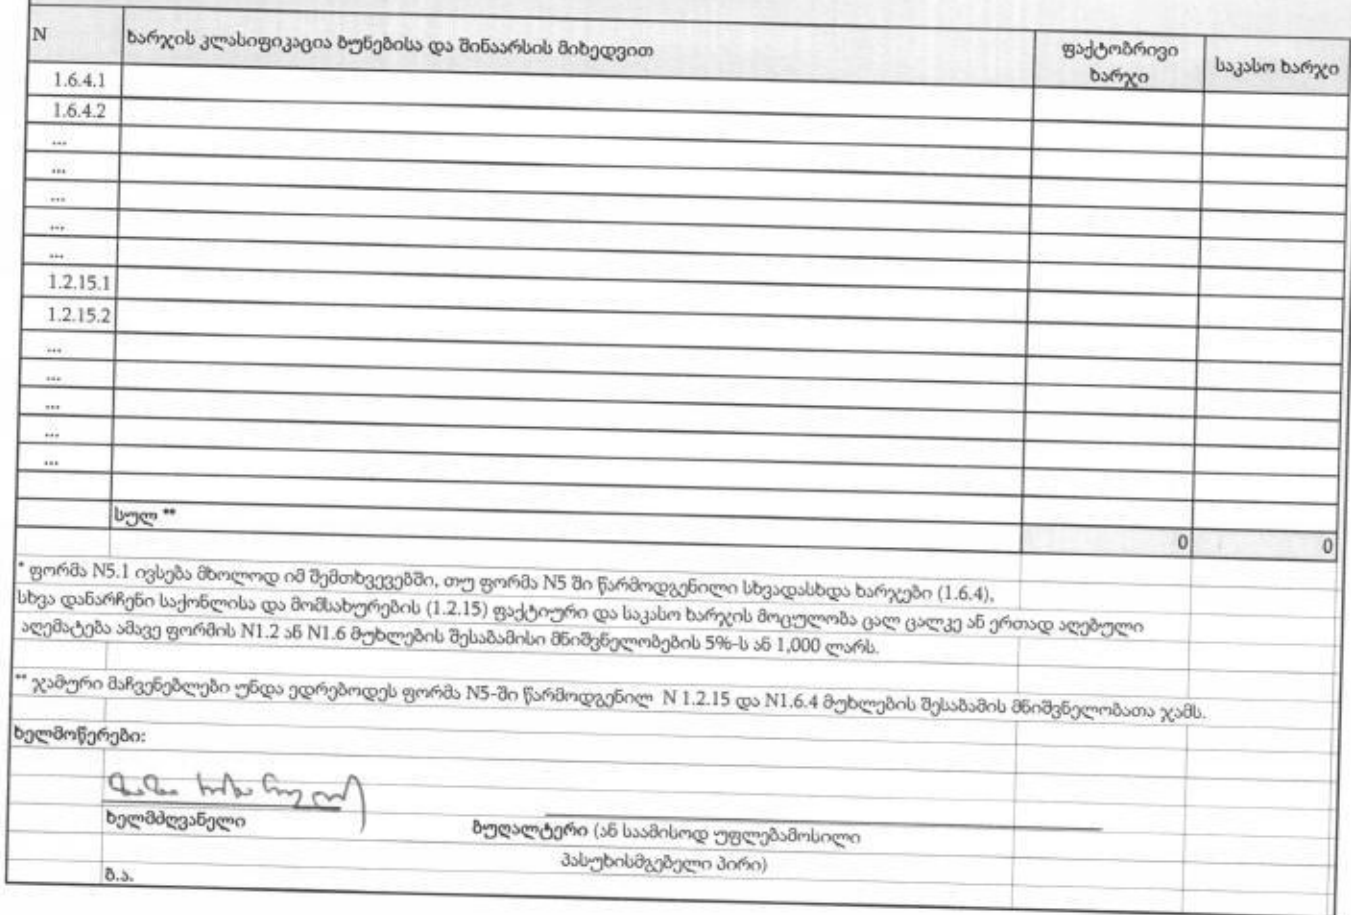 N ხარჯის კლასიფიკაცია ბუნებისა და შინაარსის მიხედვით ფაქტობრივი ხარჯი საკასო ხარჯი
1.6.4.1
1.6.4.2
...
...
...
...
...
1.2.15.1
1.2.15.2
...
...
...
...
...
სულ ** 0 0
* ფორმა N5.1 ივსება მხოლოდ იმ შემთხვევებში, თუ ფორმა N5 ში წარმოდგენილი სხვადასხდა ხარჯები (1.6.4),
სხვა დანარჩენი საქონლისა და მომსახურების (1.2.15) ფაქტიური და საკასო ხარჯის მოცულობა ცალ ცალკე ან ერთად აღებული
აღემატება ამავე ფორმის N1.2 ან N1.6 მუხლების შესაბამისი მნიშვნელობების 5%-ს ან 1,000 ლარს.
** ჯამური მაჩვენებლები უნდა ედრებოდეს ფორმა N5-ში წარმოდგენილ N 1.2.15 და N1.6.4 მუხლების შესაბამის მნიშვნელობათა ჯამს.
ხელმოწერები:
ხელმძღვანელი
ბუღალტერი (ან საამისოდ უფლებამოსილი
პასუხისმგებელი პირი)
ბ.ა.